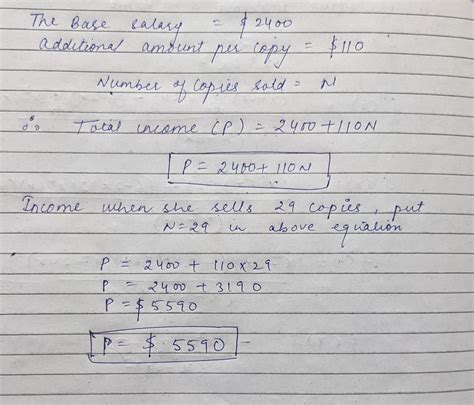 The Base salary = $ 2400
additional amount per copy = $110
Number of copies sold = N
∴ Total income (P) = 2400 + 110N
P = 2400 + 110N
Income when she sells 29 copies, put
N=29 in above equation
P = 2400 + 110 x 29
P = 2400 + 3190
P = $ 5590
P = $ 5590